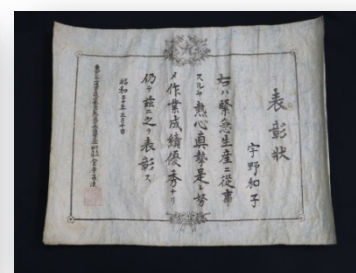 表彰状
宇野和子
右ハ緊急生産ニ従事
スルヤ熱心真勢是レ努
メ作業成績優秀ナリ
仍テ茲ニ之ヲ表彰ス
昭和二十年三月十日